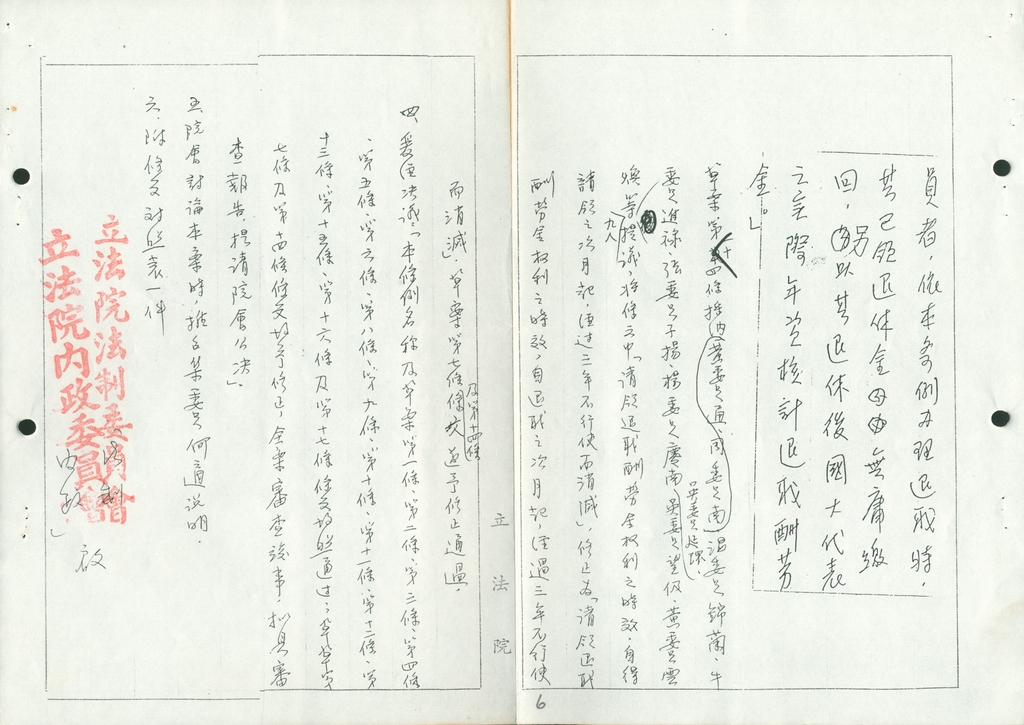 員者，依本條例辦理退職時，
其已領退休金 毋庸繳
回，另以其退休後國大代表
之實際年資核計退職酬勞
金。」
草案第十四條據 黃委員適、周委員南 溫委員錦蘭、牛
委員進祿、張委員子揚、楊委員慶南、吳委員望伋、黃委員雲
煥等九人提議，將條文中「請領退職酬勞金權利之時效，自得
請領之次月起，經過三年不行使而消滅」，修正為「請領退職
酬勞金權利之時效，自退職之次月起，經過三年不行使
6
立法院
而消滅」，草案第七條及第十四條條文遂予修正通過。
四、爰經決議：「本條例名稱及草案第一條、第二條、第三條、第四條
、第五條、第六條、第八條、第九條、第十條、第十一條、第十二條、第
十三條、第十五條、第十六條及第十七條條文均照通過；草案第
七條及第十四條條文均予修正，全案審查竣事，擬具審
查報告，提請院會公決」。
五、院會討論本案時，推召集委員何適說明。
六、附條文對照表一件
立法院法制委員會
立法院內政委員會
法制
內政」
啟